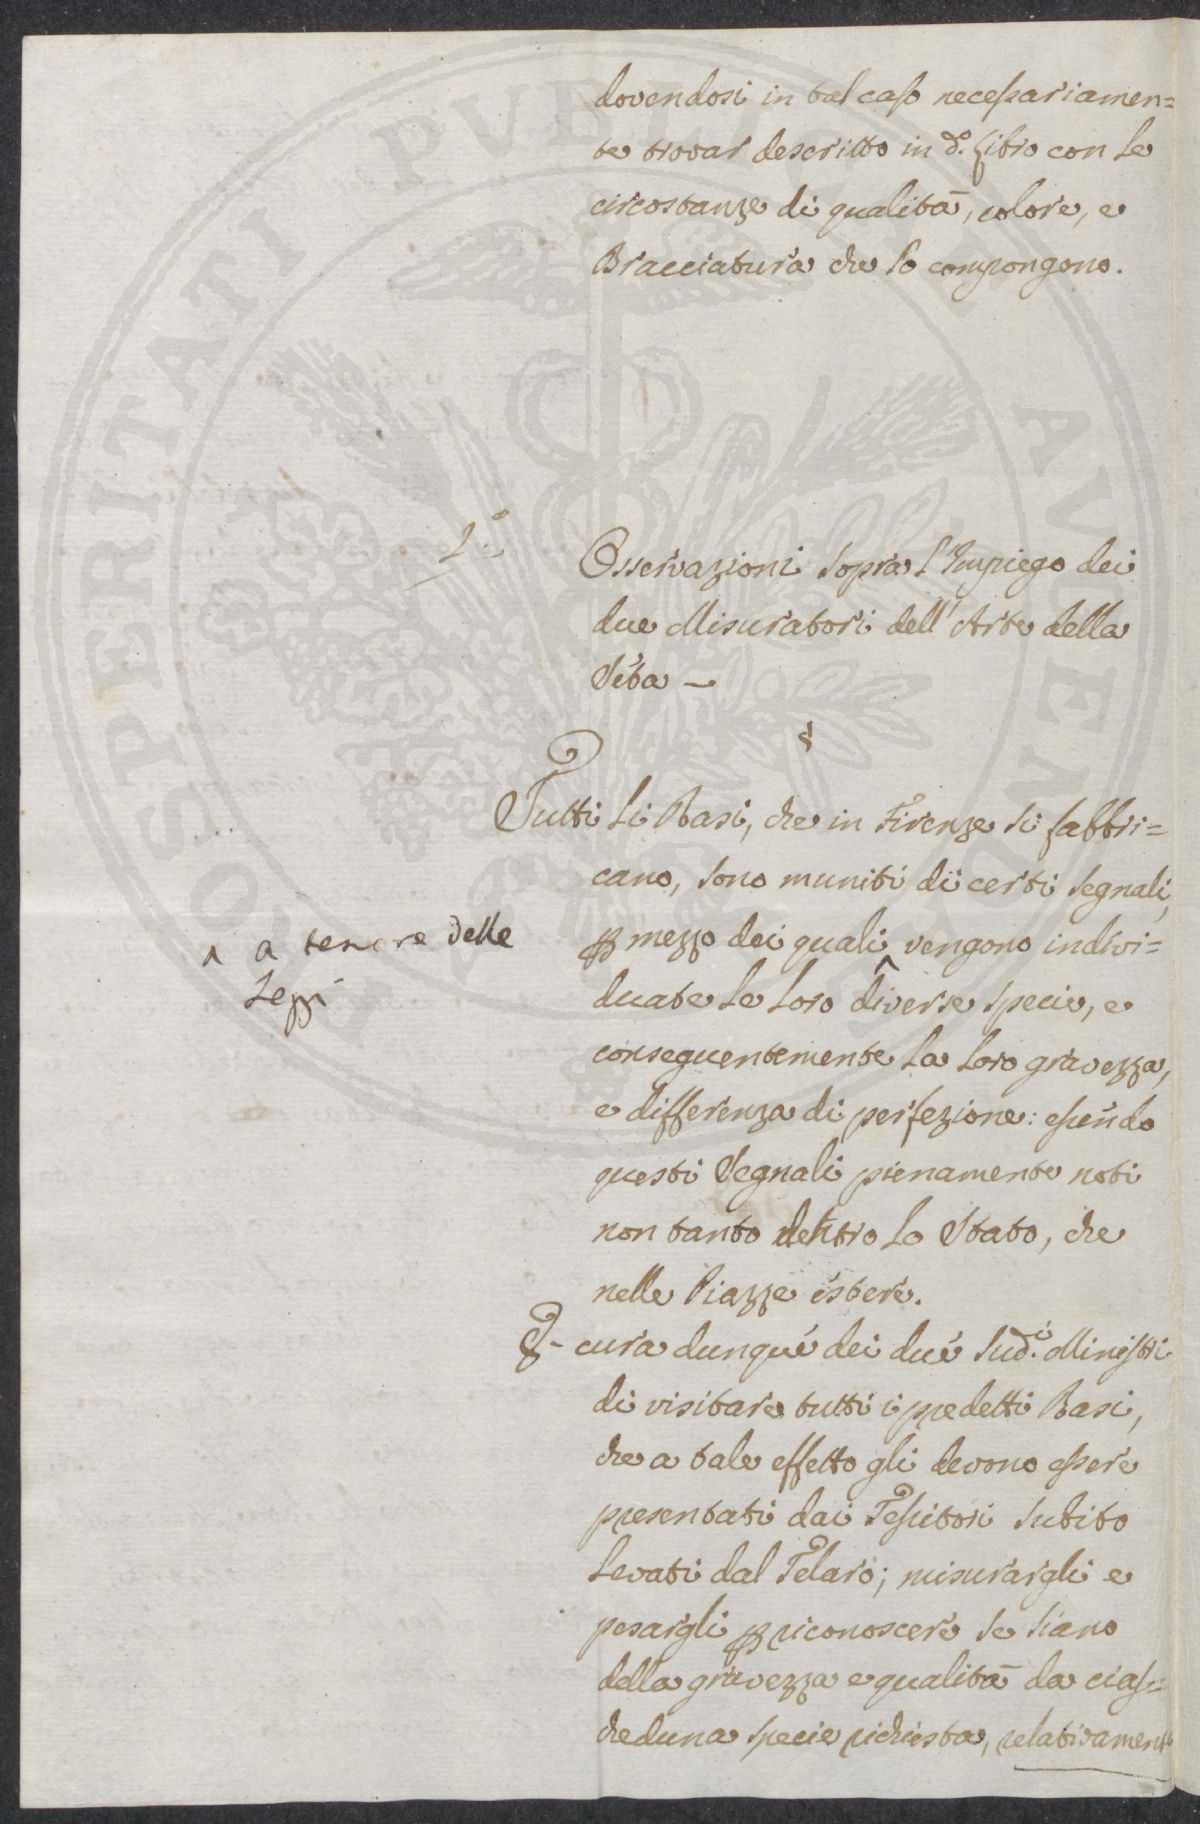 dovendosi in tal caso necessariamen=
te trovar descritto in d.o Libro con le
circostanze di qualità, colore, e
Bracciatura che lo compongono.
2.o
Osservazioni sopra l'Impiego dei
due Misuratori dell'Arte della
Seta —
§
Tutti li Rasi, che in Firenze si fabbri=
cano, sono muniti di certi segnali,
^ a tenore delle
Leggi
p mezzo dei quali ^ vengono indivi=
duate le loro diverse specie, e
conseguentemente la loro gravezza,
e differenza di perfezione: essendo
questi Segnali pienamente noti
non tanto dentro lo Stato, che
nelle Piazze estere.
È cura dunque dei due Sud.i Ministri
di visitare tutti i predetti Rasi,
che a tale effetto gli devono essere
presentati dai Tessitori subito
levati dal Telaro; misurargli e
pesargli p riconoscere se siano
della gravezza e qualità da ciasc=
heduna specie richiesta, relativament
PROSPERITATI PUBLICAE AUGENDAE